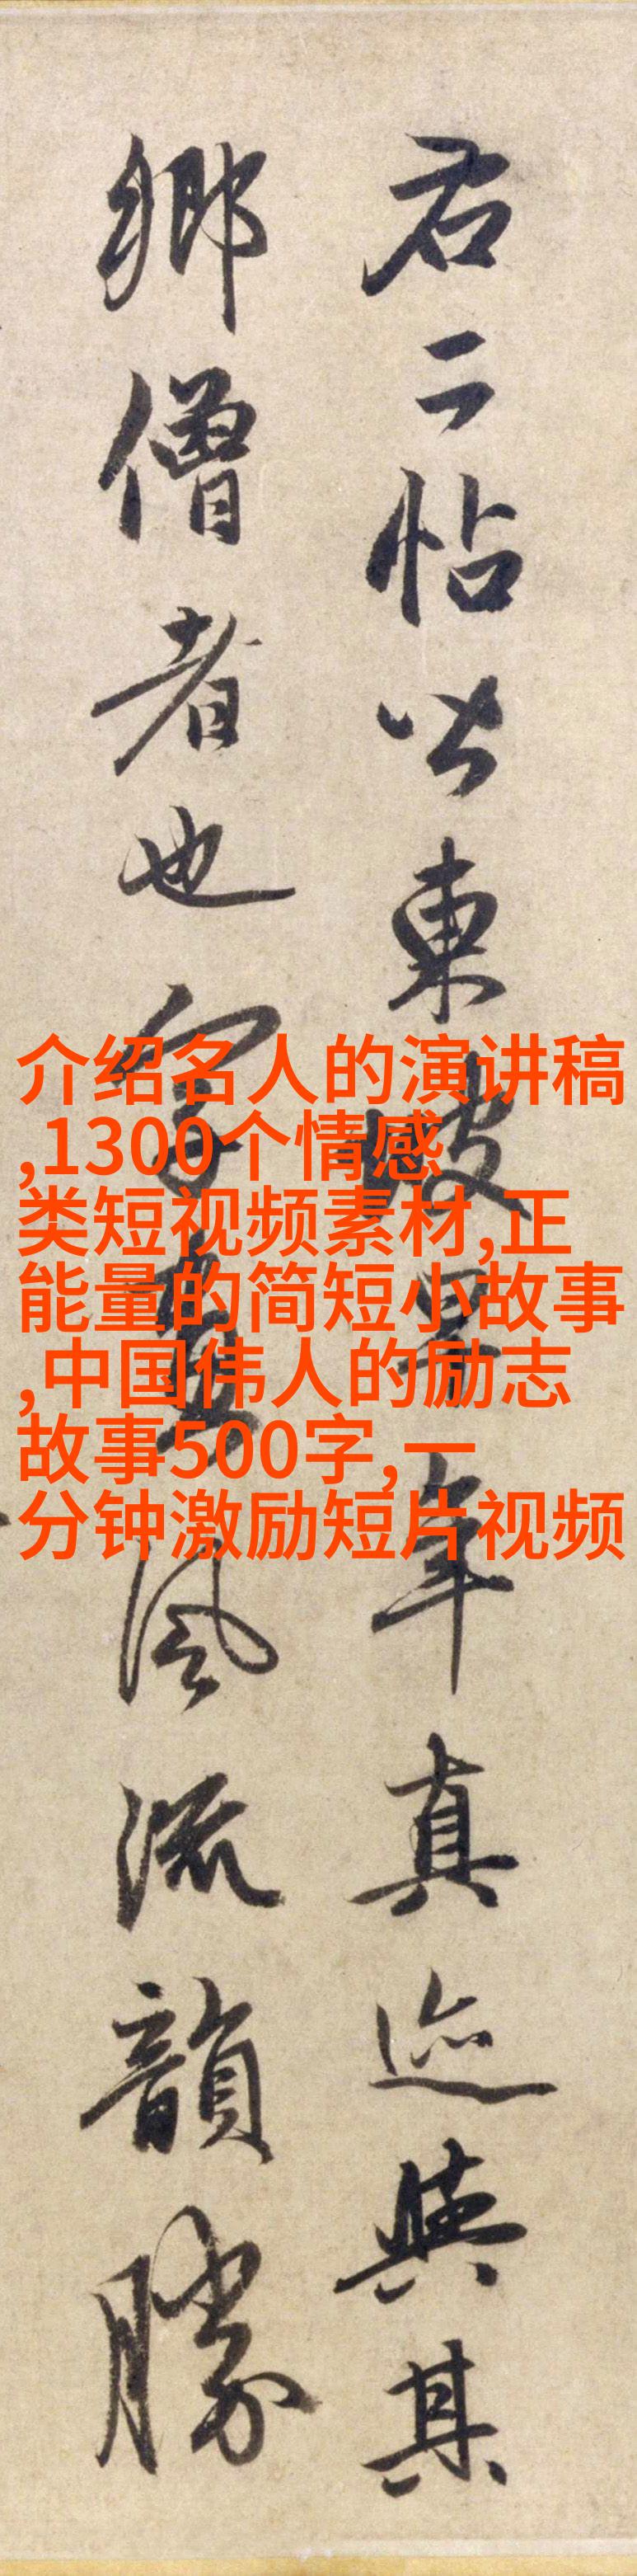 右二帖皆東坡早年真迹與其
鄉僧者也字畫風流韻勝
介绍名人的演讲稿
,1300个情感
类短视频素材,正
能量的简短小故事
,中国伟人的励志
故事500字,一
分钟激励短片视频